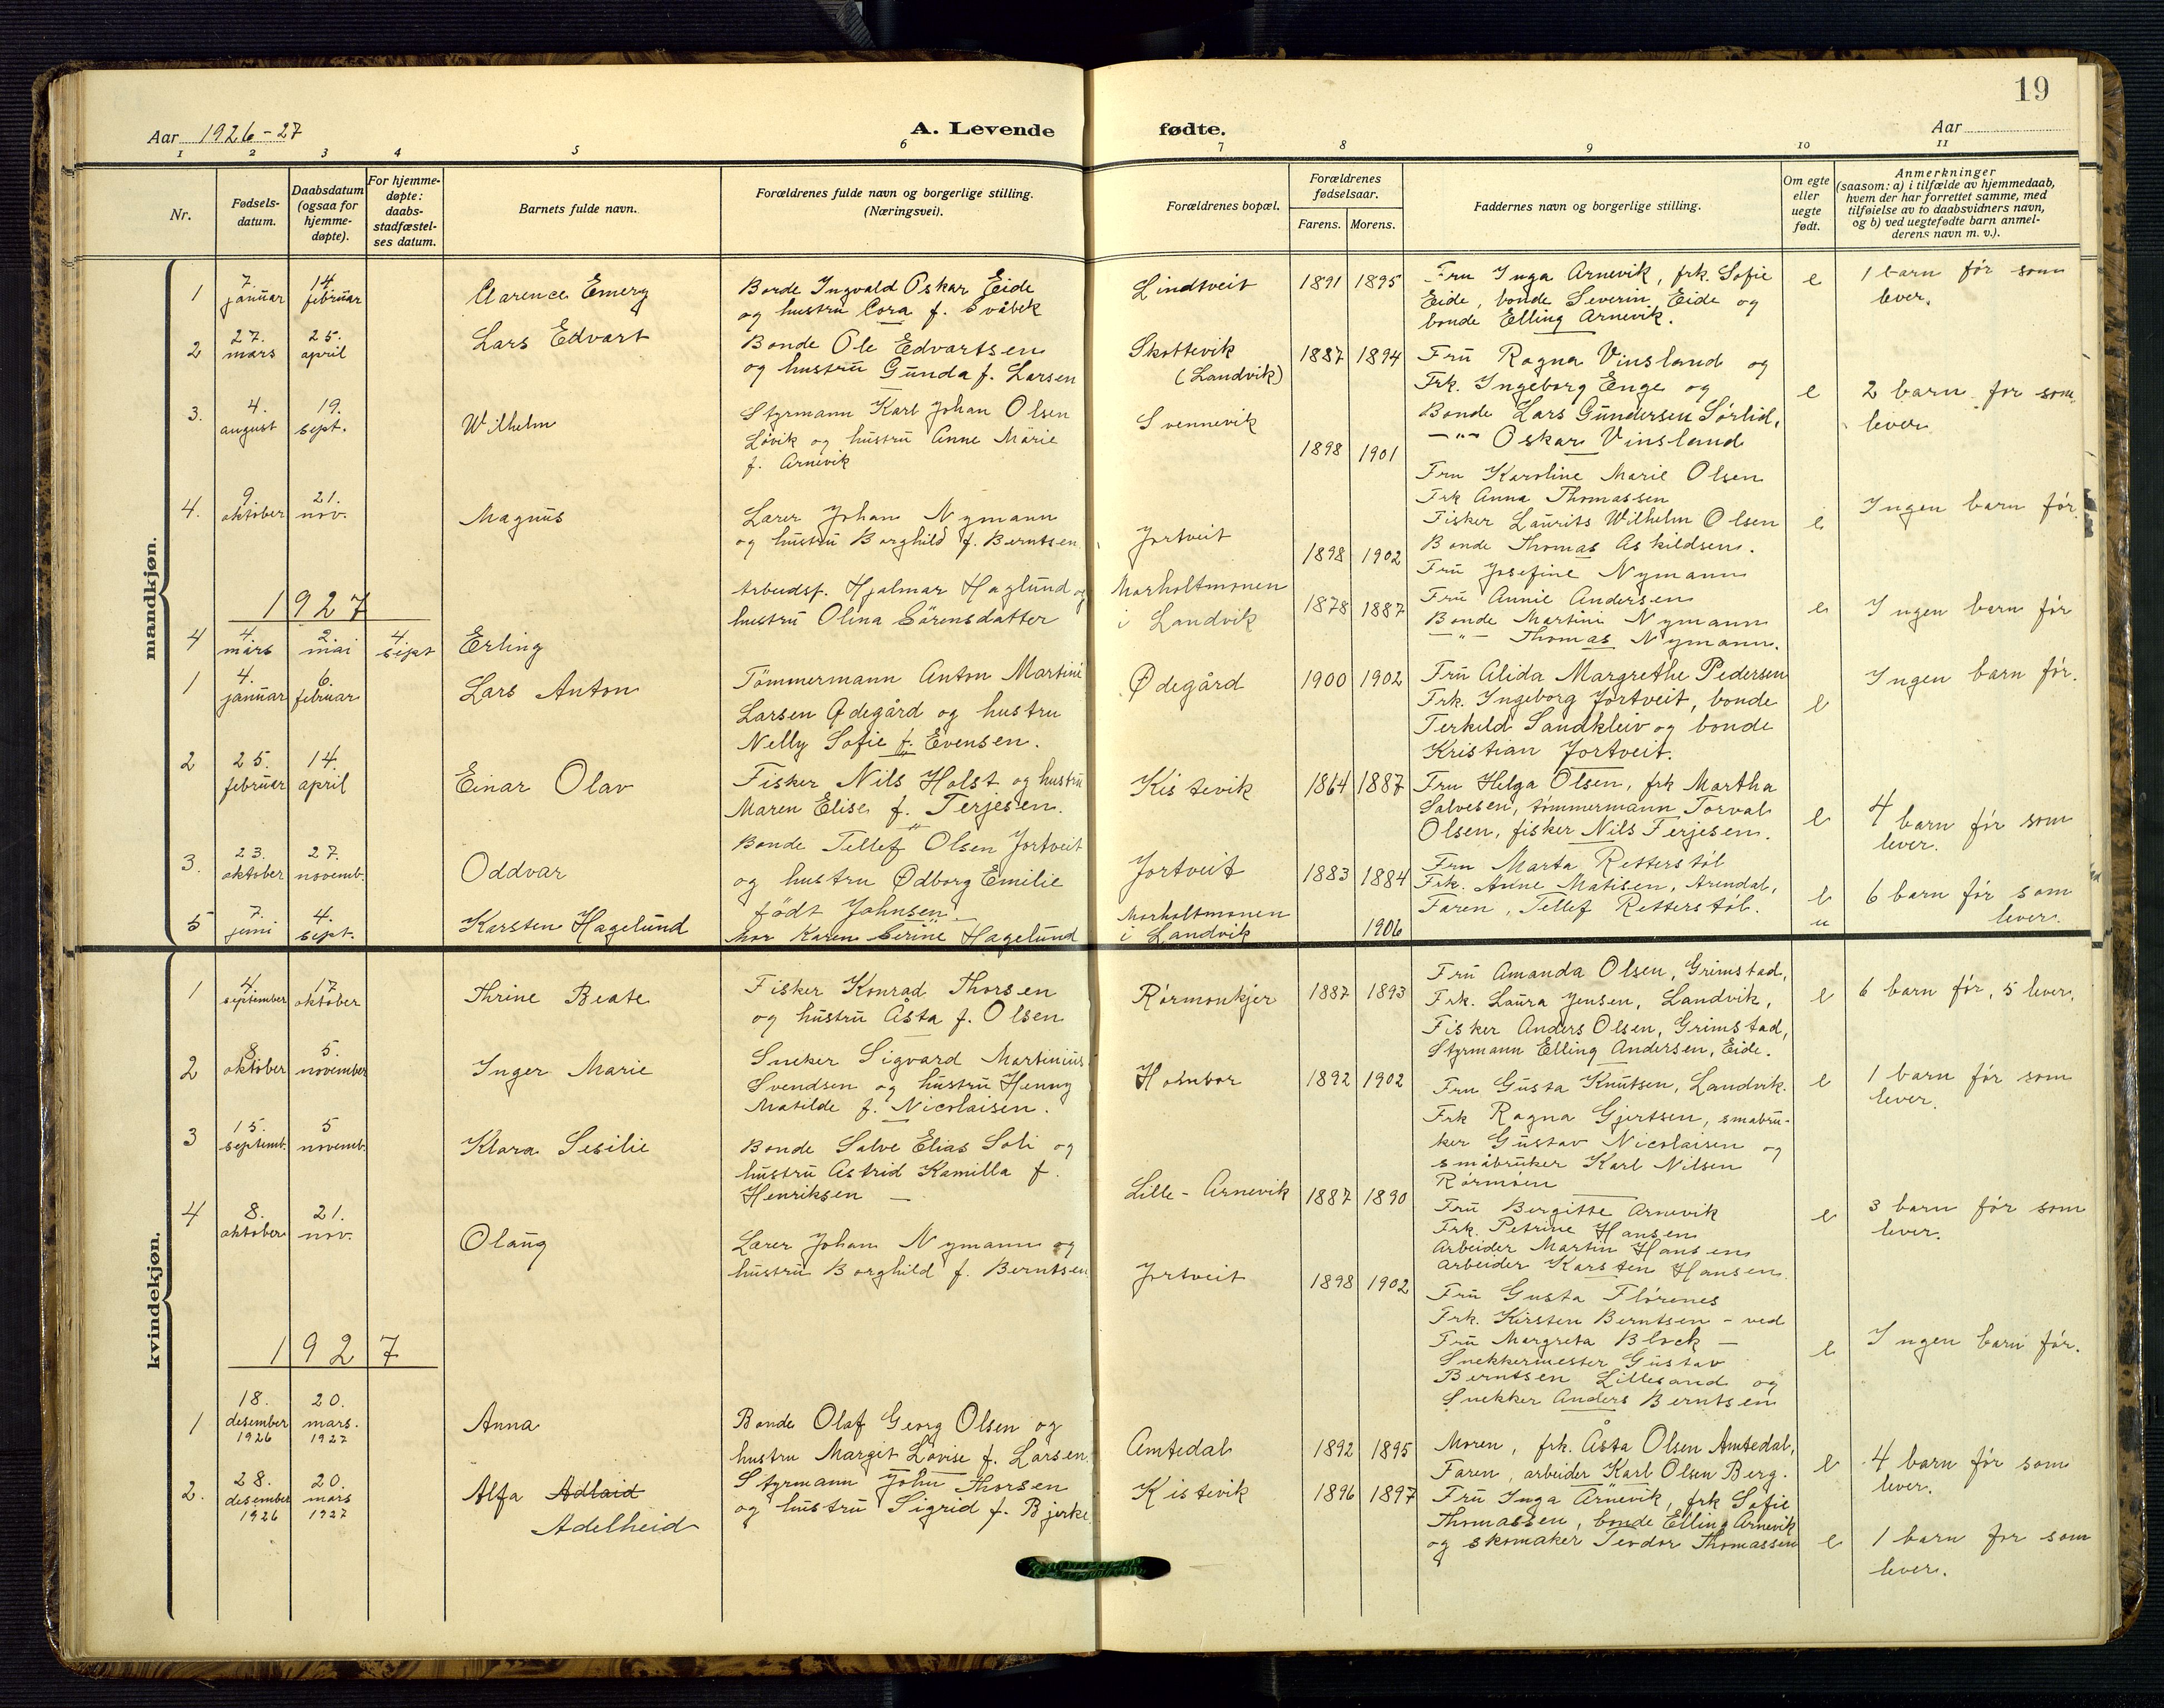 19
Aar 1926-27
A. Levende fødte.
Aar
1 2 3 4 5 6 7 8 9 10 11
Nr.
Fødsels-
datum.
Daabsdatum
(ogsaa for
hjemme-
døpte).
For hjemme-
døpte:
daabs-
stadfæstel-
ses datum.
Barnets fulde navn.
Forældrenes fulde navn og borgerlige stilling.
(Næringsvei).
Forældrenes bopæl.
Forældrenes
fødselsaar.
Farens. Morens.
Faddernes navn og borgerlige stilling.
Om egte
eller
uegte
født.
Anmerkninger
(saasom: a) i tilfælde av hjemmedaab,
hvem der har forrettet samme, med
tilføielse av to daabsvidners navn,
og b) ved uegtefødte barn anmel-
derens navn m. v.).
mandkjøn.
1
7.
januar
14
februar
Clarence Emery
Bonde Ingvald Oskar Eide
og hustru Cora f. Svåbek
Lindtveit
1891 1895
Fru Inga Arnevik, frk. Sofie
Eide, bonde Severin Eide og
bonde Elling Arnevik.
e
1 barn før som
lever.
2
27.
mars
25.
april
Lars Edvart
Bonde Ole Edvartsen
og hustru Gunda f. Larsen
Skottevik
(Landvik)
1887 1894
Fru Ragna Vinsland og
Frk. Ingeborg Enge og
Bonde Lars Gundersen Sørlid,
—"— Oskar Vinsland
e
2 barn før som
lever
3.
4.
august
19.
sept.
Wilhelm
Styrmann Karl Johan Olsen
Løvik og hustru Anne Marie
f. Arnevik
Svennevik
1898 1901
Fru Karoline Marie Olsen
Frk Anna Thomassen
Fisker Laurits Wilhelm Olsen
Bonde Thomas Askildsen.
e
Ingen barn før.
4.
9
oktober
21.
nov.
Magnus
Lærer Johan Nymann
og hustru Borghild f. Berntsen
Jortveit
1898 1902
Fru Josefine Nymann
Fru Annie Andersen
Bonde Martine Nymann
—"— Thomas Nymann.
e
Ingen barn før
1927
4
4.
mars
2.
mai
4.
sept
Erling
Arbeidsf. Hjalmar Haglund og
hustru Olina Sörensdatter
Morholtmonen
i Landvik
1878 1887
1
4.
januar
6.
februar
Lars Anton
Tömmermann Anton Martine
Larsen Ødegård og hustru
Nelly Sofie f. Evensen.
Ødegård
1900 1902
Fru Alida Margrethe Pedersen
Frk. Ingeborg Jortveit, bonde
Terkild Sandkleiv og bonde
Kristian Jortveit.
e
Ingen barn før.
2
25.
februar
14.
april
Einar Olav
Fisker Nils Holst og hustru
Maren Elise f. Terjesen.
Kistevik
1864 1887
Fru Helga Olsen, frk Martha
Salvesen, tømmermann Torval
Olsen, fisker Nils Terjesen.
e
4 barn før som
lever.
3.
23.
oktober
27.
novemb.
Oddvar
Bonde Tellef Olsen Jortveit
og hustru Ødborg Emilie
født Johnsen
Jortveit
1883 1884
Fru Marta Retterstøl
Frk. Anne Matisen, Arendal,
Faren, Tellef Retterstøl.
e
6 barn før som
lever.
5
7.
juni
4.
sept.
Karsten Hagelund
Mor Karen Serine Hagelund
Morholtmonen
i Landvik
1906
u
kvindekjøn.
1
4.
september
17
oktober
Thrine Beate
Fisker Konrad Thorsen
og hustru Åsta f. Olsen
Rørmonkjer
1887 1893
Fru Amanda Olsen, Grimstad,
Frk. Laura Jensen, Landvik,
Fisker Anders Olsen, Grimstad,
Styrmann Elling Andersen, Eide.
e
6 barn før, 5 lever.
2
8.
oktober
5.
november
Inger Marie
Sneker Sigvard Martinius
Svendsen og hustru Henny
Matilde f. Nicolaisen.
Hombor
1892 1902
Fru Gusta Knutsen, Landvik.
Frk Ragna Gjertsen, småbru-
ker Gustav Nicolaisen og
småbruker Karl Nilsen
Rørmoen
e
1 barn før som
lever.
3
15.
septemb.
5
novemb.
Klara Sesilie
Bonde Salve Elias Soli og
hustru Astrid Kamilla f.
Henriksen —
Lille-Arnevik
1887 1890
Fru Bergitte Arnevik
Frk. Petrine Hansen
Arbeider Martin Hansen
Arbeider Karsten Hansen
e
3 barn før som
lever.
4
8.
oktober
21.
nov.
Olaug
Lærer Johan Nymann og
hustru Borghild f. Berntsen
Jortveit
1898 1902
Fru Gusta Flørenes
Frk. Kirsten Berntsen – ved
Fru Margreta Block —
Snekkermester Gustav
Berntsen Lillesand og
Snekker Anders Berntsen
e
Ingen barn før.
1927
1
18.
desember
1926
20.
mars.
1927
Anna
Bonde Olaf Georg Olsen og
hustru Margit Lovise f. Larsen
Amtedal
1892 1895
Moren, frk. Åsta Olsen Amtedal,
Faren, arbeider Karl Olsen Berg.
e
4 barn før som
lever.
2.
28.
desember
1926
20.
mars
1927
Alfa Adlaid
Adelheid
Styrmann John Thorsen
og hustru Sigrid f. Bjerke
Kistevik
1896 1897
Fru Inga Arnevik, frk Sofie
Thomassen, bonde Elling Arnevik
og skomaker Teodor Thomassen
e
1 barn før som
lever.